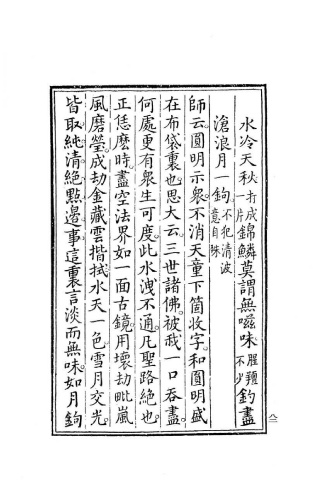 水冷天秋打成一片錦鱗莫謂無嗞味腥羶不少釣盡
滄浪月一鉤不犯清波意自殊
師云圓明示衆不消天童下箇收字和圓明盛
在布袋裏也思大云三世諸佛被我一口吞盡
何處更有衆生可度此水洩不通凡聖路絕也
正恁麽時盡空法界如一面古鏡用壞劫毗嵐
風磨瑩成劫金藏雲揩拭水天一色雪月交光
皆取純清絕點邊事這裏言淡而無味如月鉤